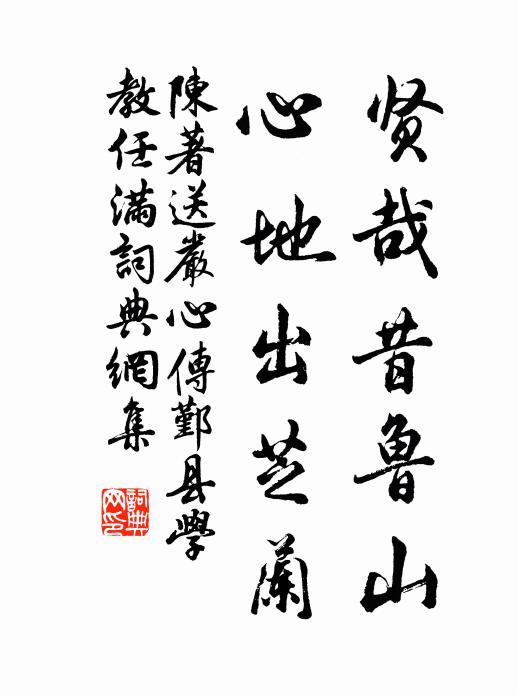 贤哉昔魯山
心地出芝蘭
陳著送嚴心傳鄞县學
教任滿詞典網集
詞典网印